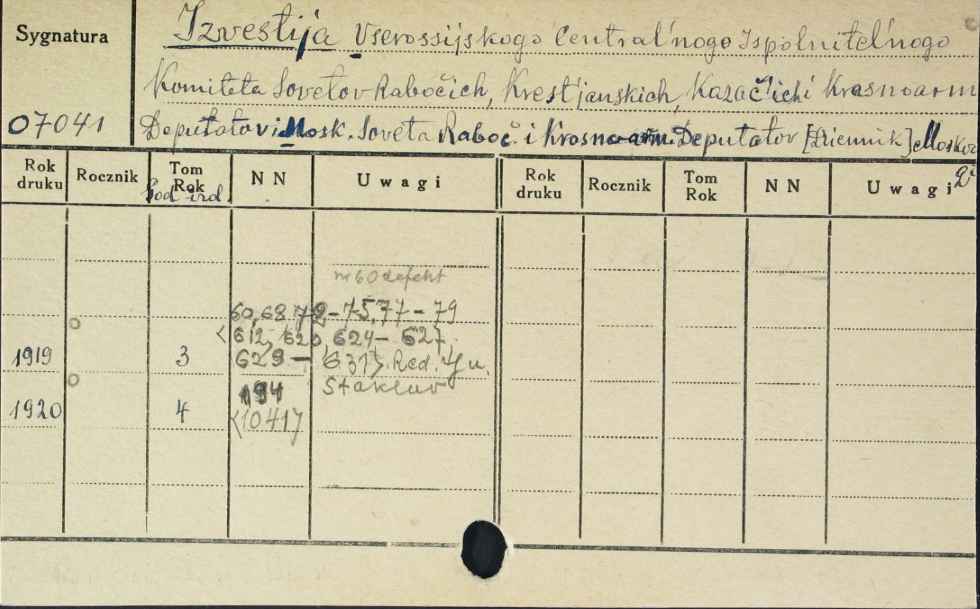 Sygnatura
Izvestija Vserossijskogo Central'nogo Ispolnitel'nogo
Komiteta Sovetov Rabočich, Krest'janskich, Kazač'ich i Krasnoarm
07041
Deputatov i Mosk. Soveta Raboč. i Krasno-arm. Deputatov [Dziennik] Moskva
Rok druku Rocznik Tom Rok NN Uwagi Rok druku Rocznik Tom Rok NN Uwagi
God izd.
nr 60 defekt
60, 68, 72-75, 77-79
<612, 620, 624-627,
1919 3 629- 631>. Red. Ju.
Steklov
194
1920 4 <1041>